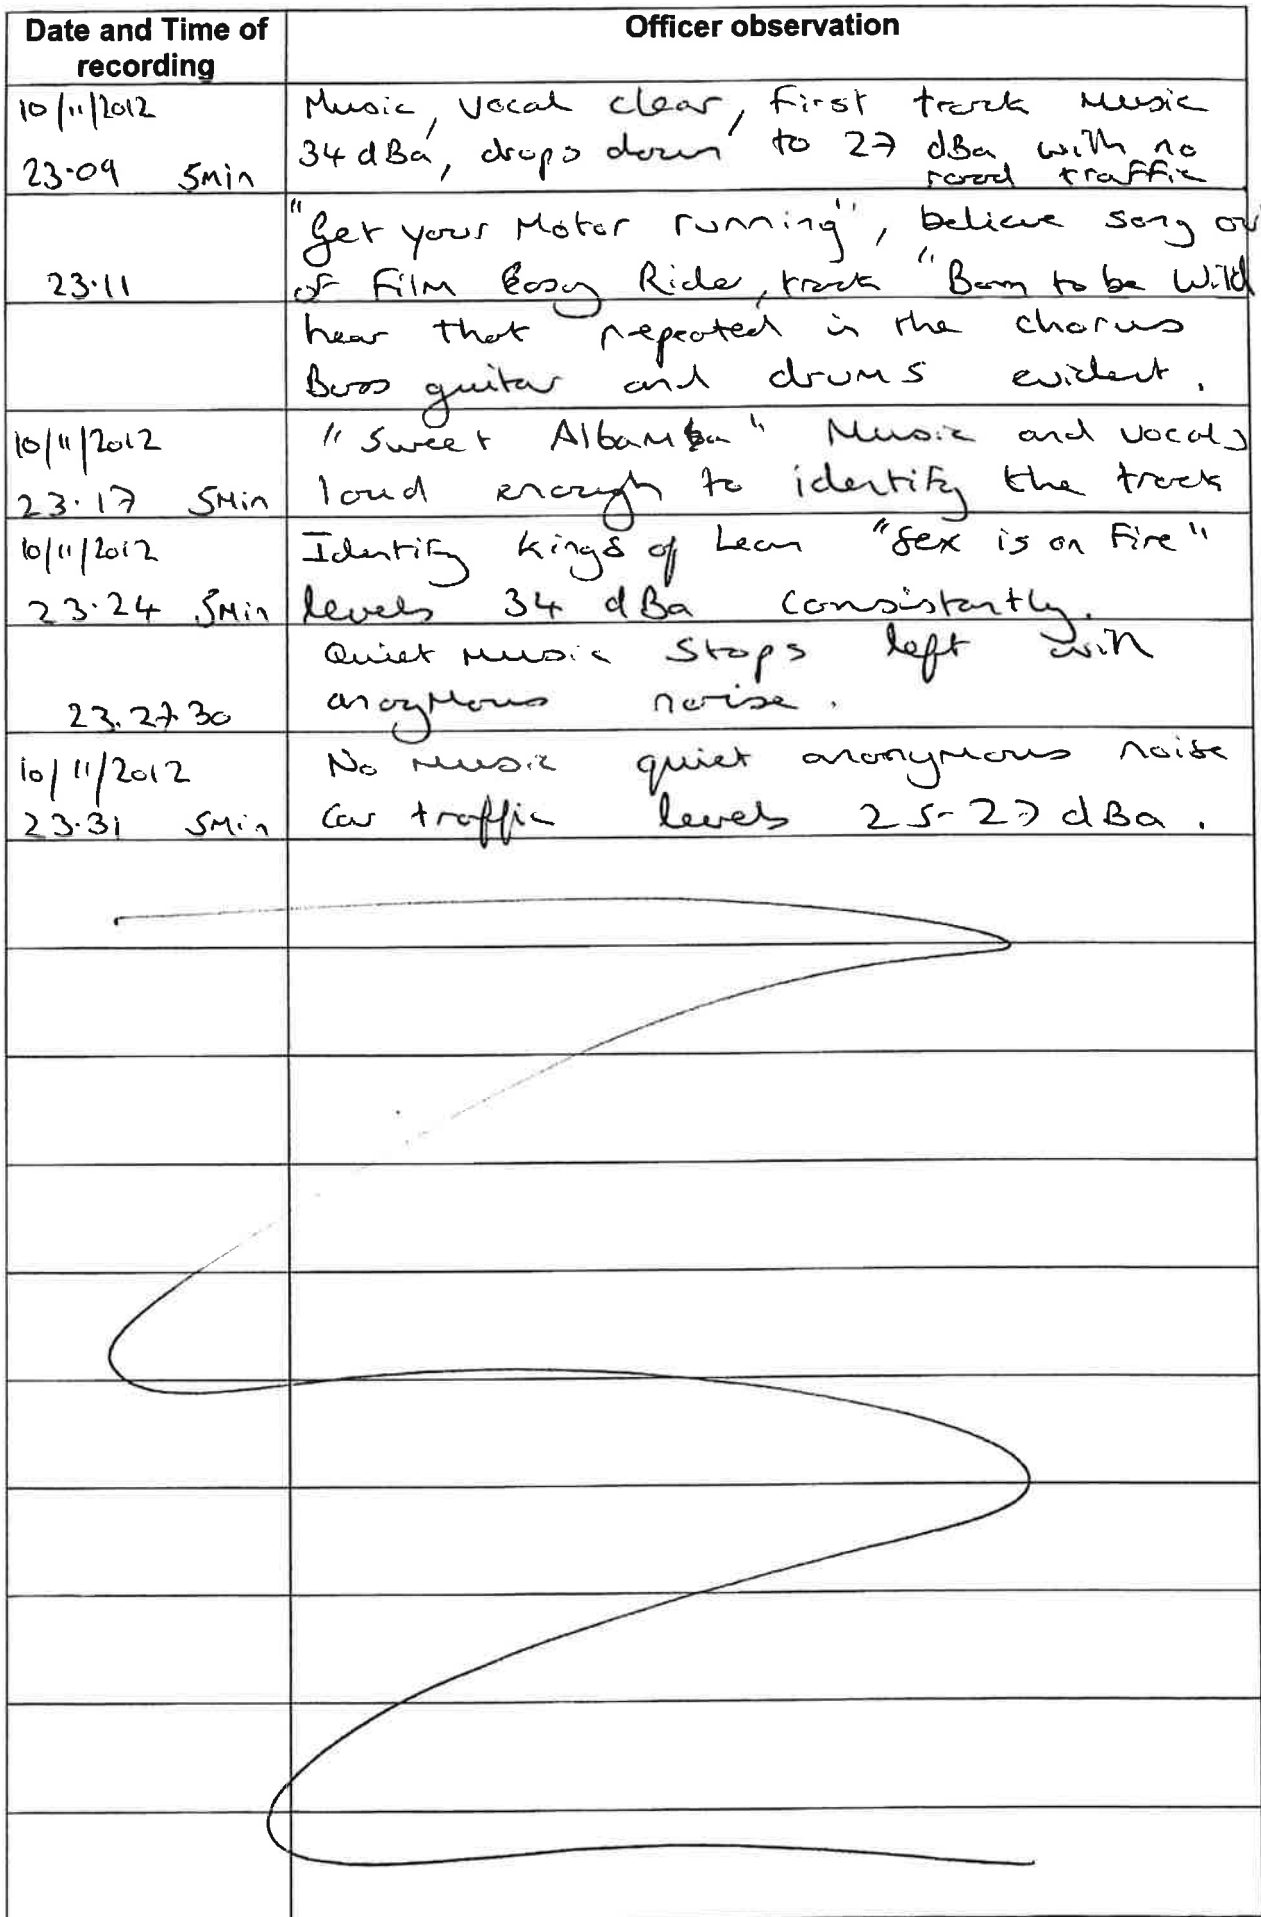 Date and Time of recording
Officer observation
10/11/2012
Music, vocal clear, First track Music
23.09 5min
34 dBa, drops down to 27 dBa with no
road traffic
"Get your Motor running", believe song ou
23.11
of Film Easy Ride, track "Born to be Wild
hear that repeated in the chorus
Bass guitar and drums evident.
10/11/2012
"Sweet Albamba" Music and vocals
23.17 5Min
loud enough to identify the track
10/11/2012
Identify Kings of Leon "Sex is on Fire"
23.24 5Min
levels 34 dBa consistantly.
Quiet music stops left with
23.27.30
anogmous noise.
10/11/2012
No music quiet anonymous noise
23.31 5Min
Car traffic levels 25-27 dBa.